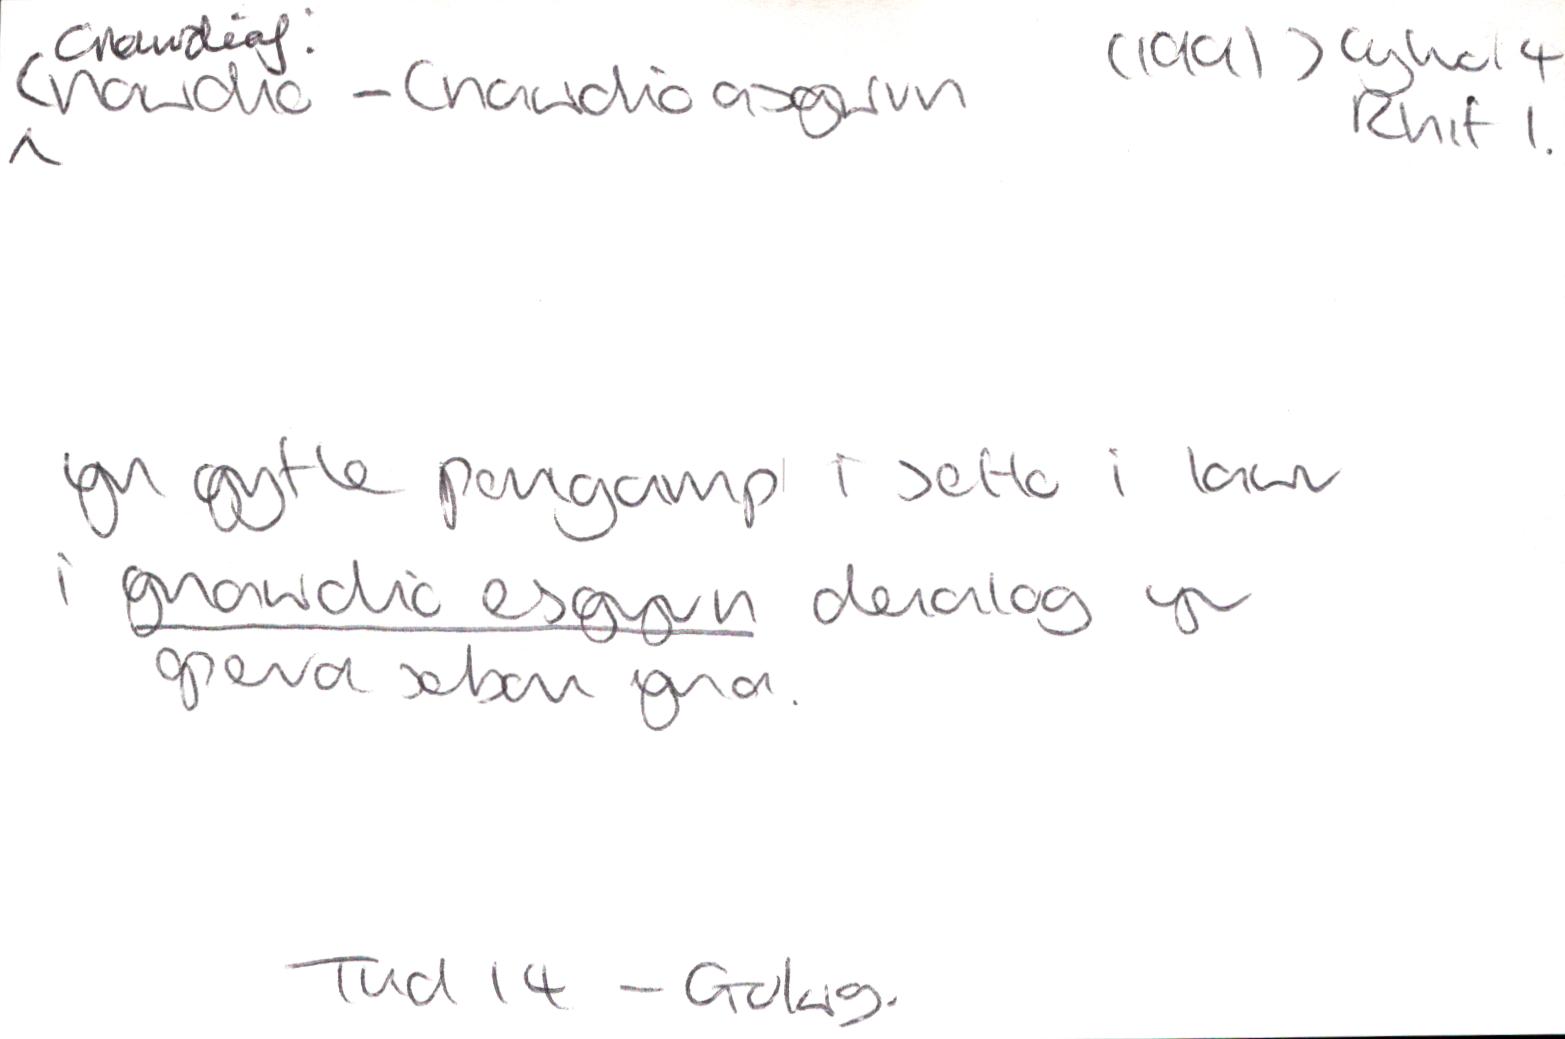 cnawdiaf:
Cnawdio - Cnawdio asgwrn
(1991) > Cyfrol 4
Rhif 1.
yn gyfle pengamp i setlo i lawr
i gnawdio esgyrn deialog yr
opera sebon yna.
Tud 14 - Golwg.